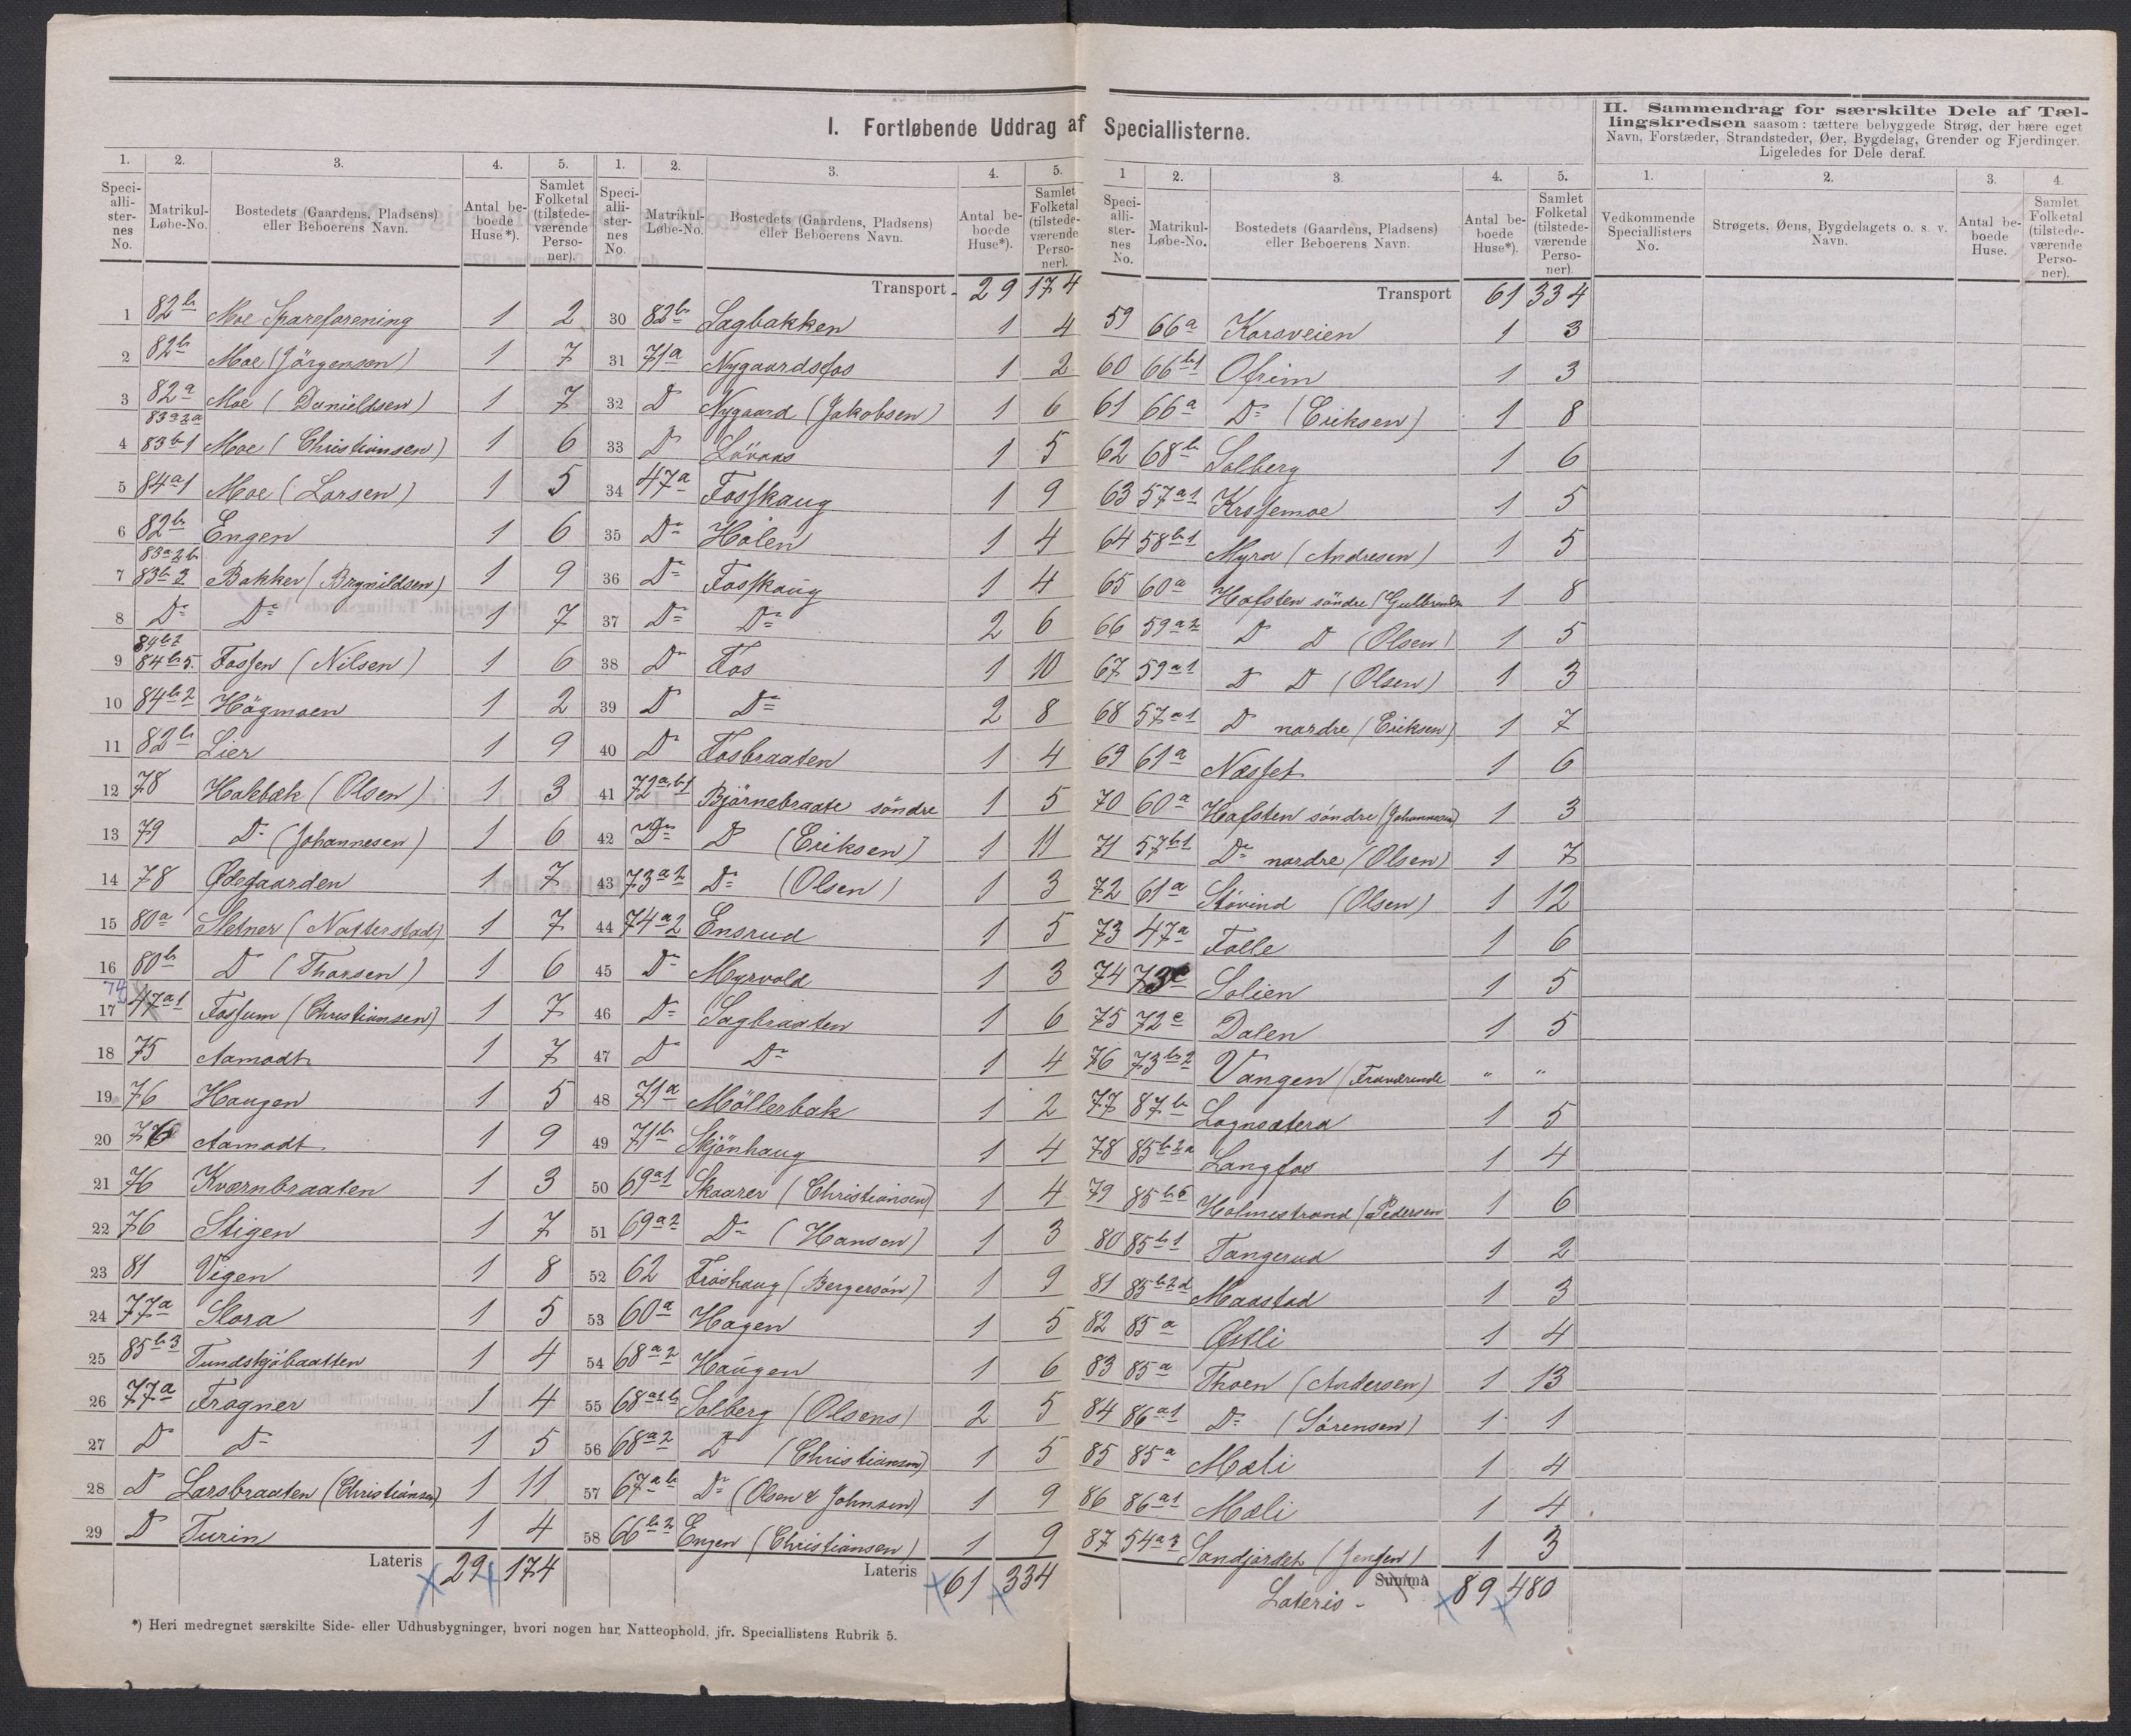 I. Fortløbende Uddrag af Speciallisterne.
1. 2. 3. 4. 5.
Speciallisternes No. Matrikul-Løbe-No. Bostedets (Gaardens, Pladsens) eller Beboerens Navn. Antal beboede Huse*). Samlet Folketal (tilstedeværende Personer).
1 82b Moe Spareforening 1 2
2 82b Moe (Jörgensen) 1 7
3 82a Moe (Danieldsen) 1 7
4 83a2a 83b1 Moe (Christiansen) 1 6
5 84a1 Moe (Larsen) 1 5
6 82b Engen 1 6
7 83a2b 83b2 Bakker (Brynildsen) 1 9
8 Do Do 1 7
9 84b2 84b5 Fossen (Nilsen) 1 6
10 84b2 Högmoen 1 2
11 82b Lier 1 9
12 78 Hakbak (Olsen) 1 3
13 79 Do (Johannesen) 1 6
14 78 Ødegaarden 1 7
15 80a Sletner (Natterstad) 1 7
16 80b D (Thorsen) 1 6
17 74 47a1 Fossum (Christiansen) 1 7
18 75 Aamodt 1 7
19 76 Haugen 1 5
20 76 Aamodt 1 9
21 76 Kværnbraaten 1 3
22 76 Stigen 1 7
23 81 Vigen 1 8
24 77a Slora 1 5
25 85b3 Tundskjöbaatten 1 4
26 77a Frogner 1 4
27 D Do 1 5
28 D Larsbraaten (Christiansen) 1 11
29 D Turin 1 4
Lateris 29 174
1. 2. 3. 4. 5.
Speciallisternes No. Matrikul-Løbe-No. Bostedets (Gaardens, Pladsens) eller Beboerens Navn. Antal beboede Huse*). Samlet Folketal (tilstedeværende Personer).
Transport 29 174
30 82b Sagbakken 1 4
31 71a Nygaardsfos 1 2
32 D Nygaard (Jakobsen) 1 6
33 D Lövaas 1 5
34 47a Fosskaug 1 9
35 Do Hölen 1 4
36 Do Fosskaug 1 4
37 Do Do 2 6
38 D Fos 1 10
39 D Do 2 8
40 D Fosbraaten 1 4
41 72a,b1 Björnebraate söndre 1 5
42 Do D (Eriksen) 1 11
43 73a2 Do (Olsen) 1 3
44 74a2 Ensrud 1 5
45 Do Myrvold 1 3
46 Do Sagbraaten 1 6
47 D Do 1 4
48 71a Möllerbak 1 2
49 71b Skjönhaug 1 4
50 69a1 Skaarer (Christiansen) 1 4
51 69a2 Do (Hansen) 1 3
52 62 Fröshaug (Bergersön) 1 9
53 60a Hagen 1 5
54 68a2 Haugen 1 6
55 68a1b Solberg (Olsens) 2 5
56 68a2 D (Christiansen) 1 5
57 67ab Do (Olsen & Johnsen) 1 9
58 66b2 Engen (Christiansen) 1 9
Lateris 61 334
1 2. 3. 4. 5.
Speciallisternes No. Matrikul-Løbe-No. Bostedets (Gaardens, Pladsens) eller Beboerens Navn. Antal beboede Huse*). Samlet Folketal (tilstedeværende Personer).
Transport 61 334
59 66a Korsveien 1 3
60 66b1 Ofrim 1 3
61 66a Do (Eriksen) 1 8
62 68b Solberg 1 6
63 57a1 Krossemoe 1 5
64 58b1 Myra (Andresen) 1 5
65 60a Hafsten söndre (Gulbrands 1 8
66 59a2 D D (Olsen) 1 5
67 59a1 D D (Olsen) 1 3
68 57a1 D nordre (Eriksen) 1 7
69 61a Næsset 1 6
70 60a Hafsten söndre (Johannesen) 1 3
71 57b1 Do nordre (Olsen) 1 7
72 61a Stövind (Olsen) 1 12
73 47a Folle 1 6
74 73c Solien 1 5
75 72c Dalen 1 5
76 73b2 Vangen (Fraværende " "
77 87b Lognsætera 1 5
78 85b2a Langfos 1 4
79 85b6 Holmestrand (Pedersen 1 6
80 85b1 Tangerud 1 2
81 85b2d Maastad 1 3
82 85a Østli 1 4
83 85a Thoen (Andersen) 1 13
84 86a1 Do (Sörensen) 1 1
85 85a Mæli 1 4
86 86a1 Mæli 1 4
87 54a3 Sandjordet (Jensen) 1 3
Summa
Lateris - 89 480
II. Sammendrag for særskilte Dele af Tællingskredsen saasom: tættere bebyggede Strøg, der bære eget
Navn, Forstæder, Strandsteder, Øer, Bygdelag, Grender og Fjerdinger.
Ligeledes for Dele deraf.
1. 2. 3. 4.
Vedkommende Speciallisters No. Strøgets, Øens, Bygdelagets o. s. v. Navn. Antal beboede Huse. Samlet Folketal (tilstedeværende Personer).
*) Heri medregnet særskilte Side- eller Udhusbygninger, hvori nogen har Natteophold, jfr. Speciallistens Rubrik 5.